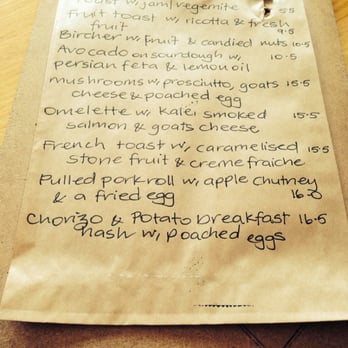 toast w, jam/vegemite 5.5
Fruit toast w, ricotta & fresh
fruit 9.5
Bircher w, fruit & candied nuts 10.5
Avocado on sourdough w, 10.5
persian feta & lemon oil
mushrooms w, prosciutto, goats 15.5
cheese & poached egg
Omelette w, kale, smoked 15.5
salmon & goats cheese
French toast w, caramelised 15.5
stone fruit & creme fraiche
Pulled pork roll w, apple chutney
& a fried egg 16.0
Chorizo & Potato breakfast 16.5
hash w, poached eggs